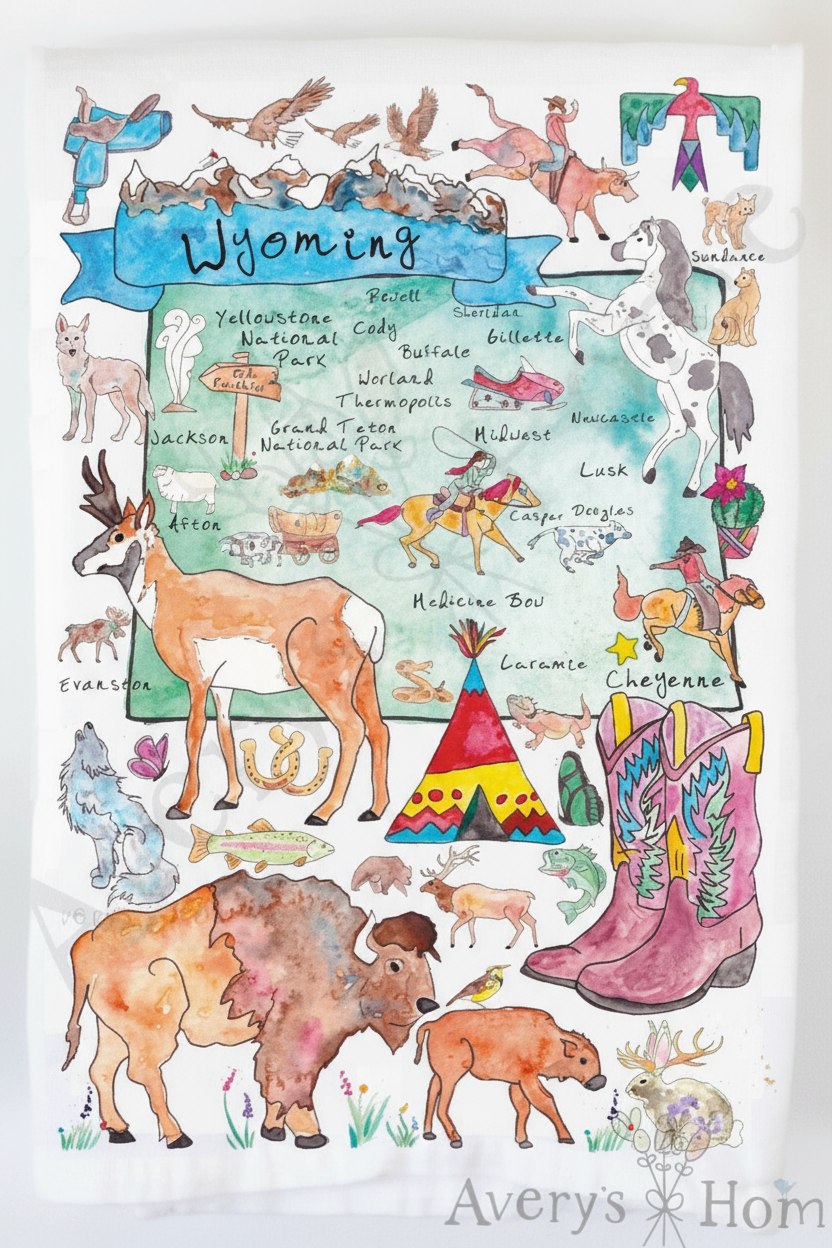 Wyoming
Sundance
Sheridan
Yellowstone
National
Park
Cody
Gillette
Buffalo
Worland
Thermopolis
Newcastle
Jackson
Grand Teton
National Park
Midwest
Lusk
Afton
Casper
Medicine Bow
Laramie
Evanston
Cheyenne
Avery's Hom